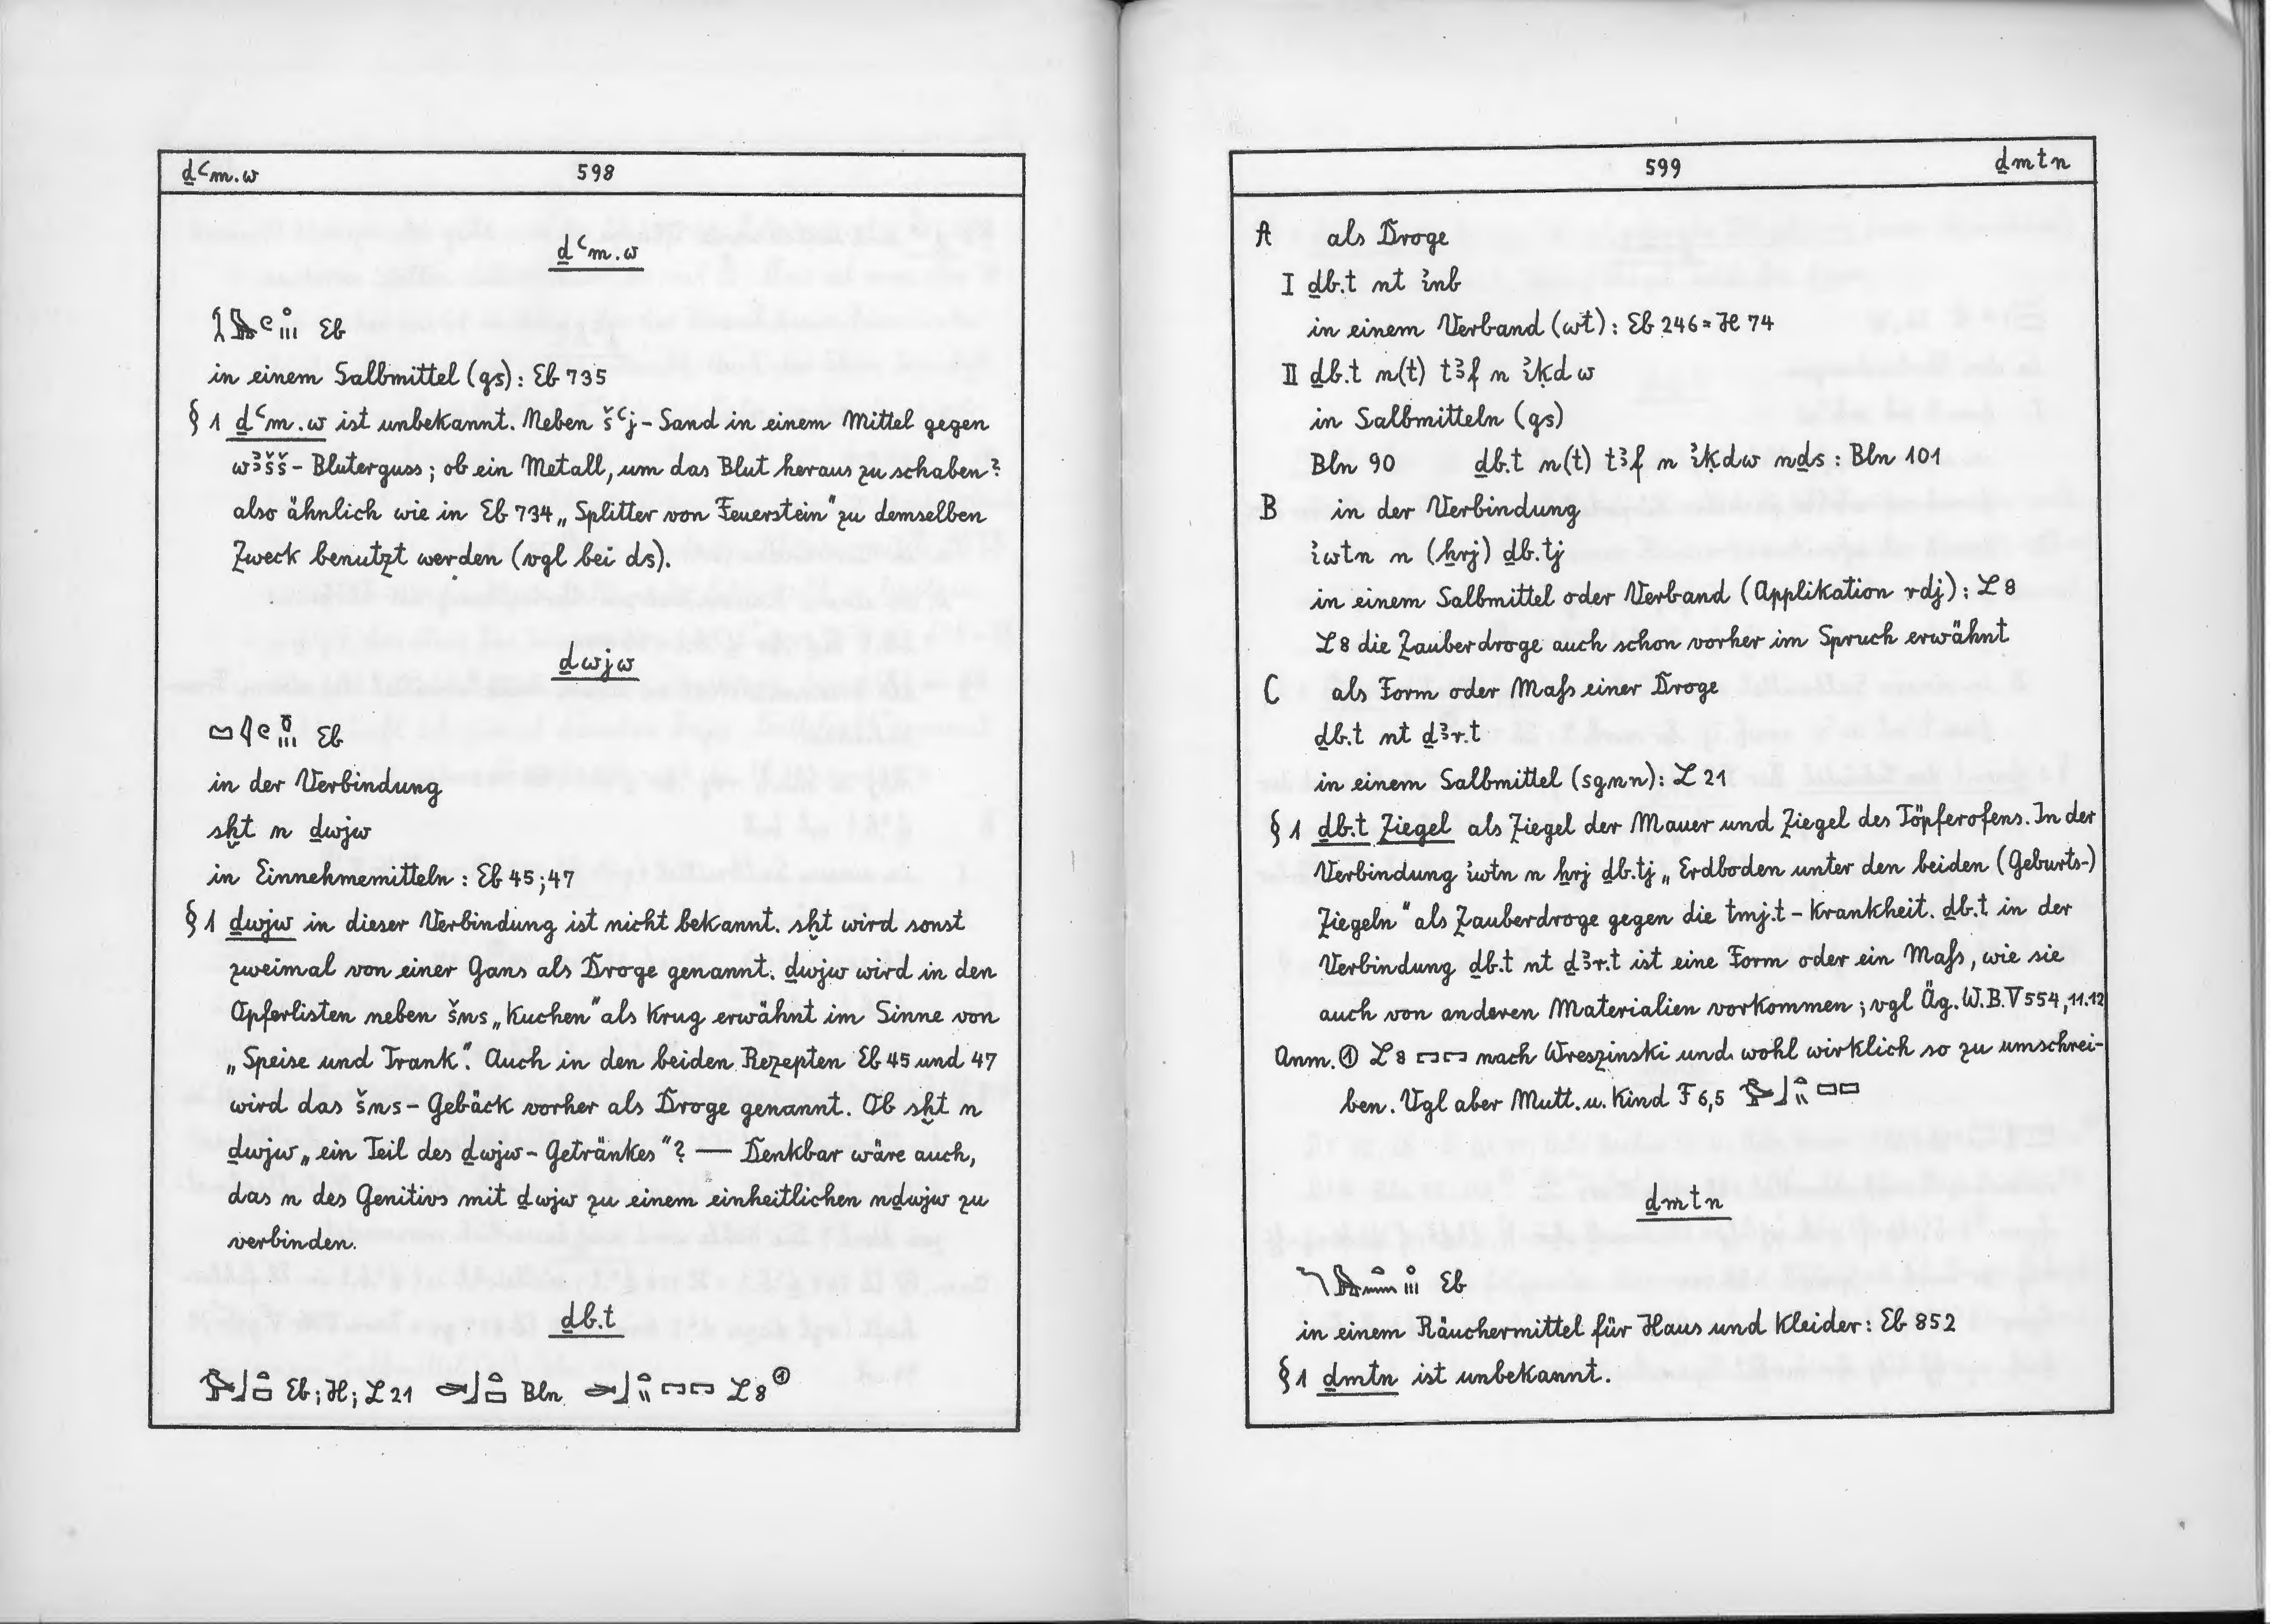 ḏꜥm.w 598
ḏꜥm.w
Eb
in einem Salbmittel (gs): Eb 735
§ 1 ḏꜥm.w ist unbekannt. Neben šꜥj - Sand in einem Mittel gegen
wꜣšš - Bluterguss; ob ein Metall, um das Blut heraus zu schaben?
also ähnlich wie in Eb 734 „Splitter von Feuerstein" zu demselben
Zweck benutzt werden (vgl bei ds).
ḏwjw
Eb
in der Verbindung
sḫt n ḏwjw
in Einnehmemitteln: Eb 45; 47
§ 1 ḏwjw in dieser Verbindung ist nicht bekannt. sḫt wird sonst
zweimal von einer Gans als Droge genannt. ḏwjw wird in den
Opferlisten neben šns „Kuchen" als Krug erwähnt im Sinne von
„Speise und Trank". Auch in den beiden Rezepten Eb 45 und 47
wird das šns - Gebäck vorher als Droge genannt. Ob sḫt n
ḏwjw „ein Teil des ḏwjw - Getränkes"? — Denkbar wäre auch,
das n des Genitivs mit ḏwjw zu einem einheitlichen nḏwjw zu
verbinden.
ḏb.t
Eb; H; L 21 Bln L 8 ①
599 ḏmtn
A als Droge
I ḏb.t nt ỉnb
in einem Verband (wt): Eb 246 = H 74
II ḏb.t n(t) tꜣf n ỉḳdw
in Salbmitteln (gs)
Bln 90 ḏb.t n(t) tꜣf n ỉḳdw nḏs: Bln 101
B in der Verbindung
ỉwtn n (ẖrj) ḏb.tj
in einem Salbmittel oder Verband (Applikation rdj): L 8
L 8 die Zauberdroge auch schon vorher im Spruch erwähnt
C als Form oder Maß einer Droge
ḏb.t nt ḏꜣr.t
in einem Salbmittel (sgnn): L 21
§ 1 ḏb.t Ziegel als Ziegel der Mauer und Ziegel des Töpferofens. In der
Verbindung ỉwtn n ẖrj ḏb.tj „Erdboden unter den beiden (Geburts-)
Ziegeln" als Zauberdroge gegen die tmj.t - Krankheit. ḏb.t in der
Verbindung ḏb.t nt ḏꜣr.t ist eine Form oder ein Maß, wie sie
auch von anderen Materialien vorkommen; vgl Äg. W.B. V 554, 11.12
Anm. ① L 8 nach Wreszinski und wohl wirklich so zu umschrei-
ben. Vgl aber Mutt. u. Kind F 6,5
ḏmtn
Eb
in einem Räuchermittel für Haus und Kleider: Eb 852
§ 1 ḏmtn ist unbekannt.